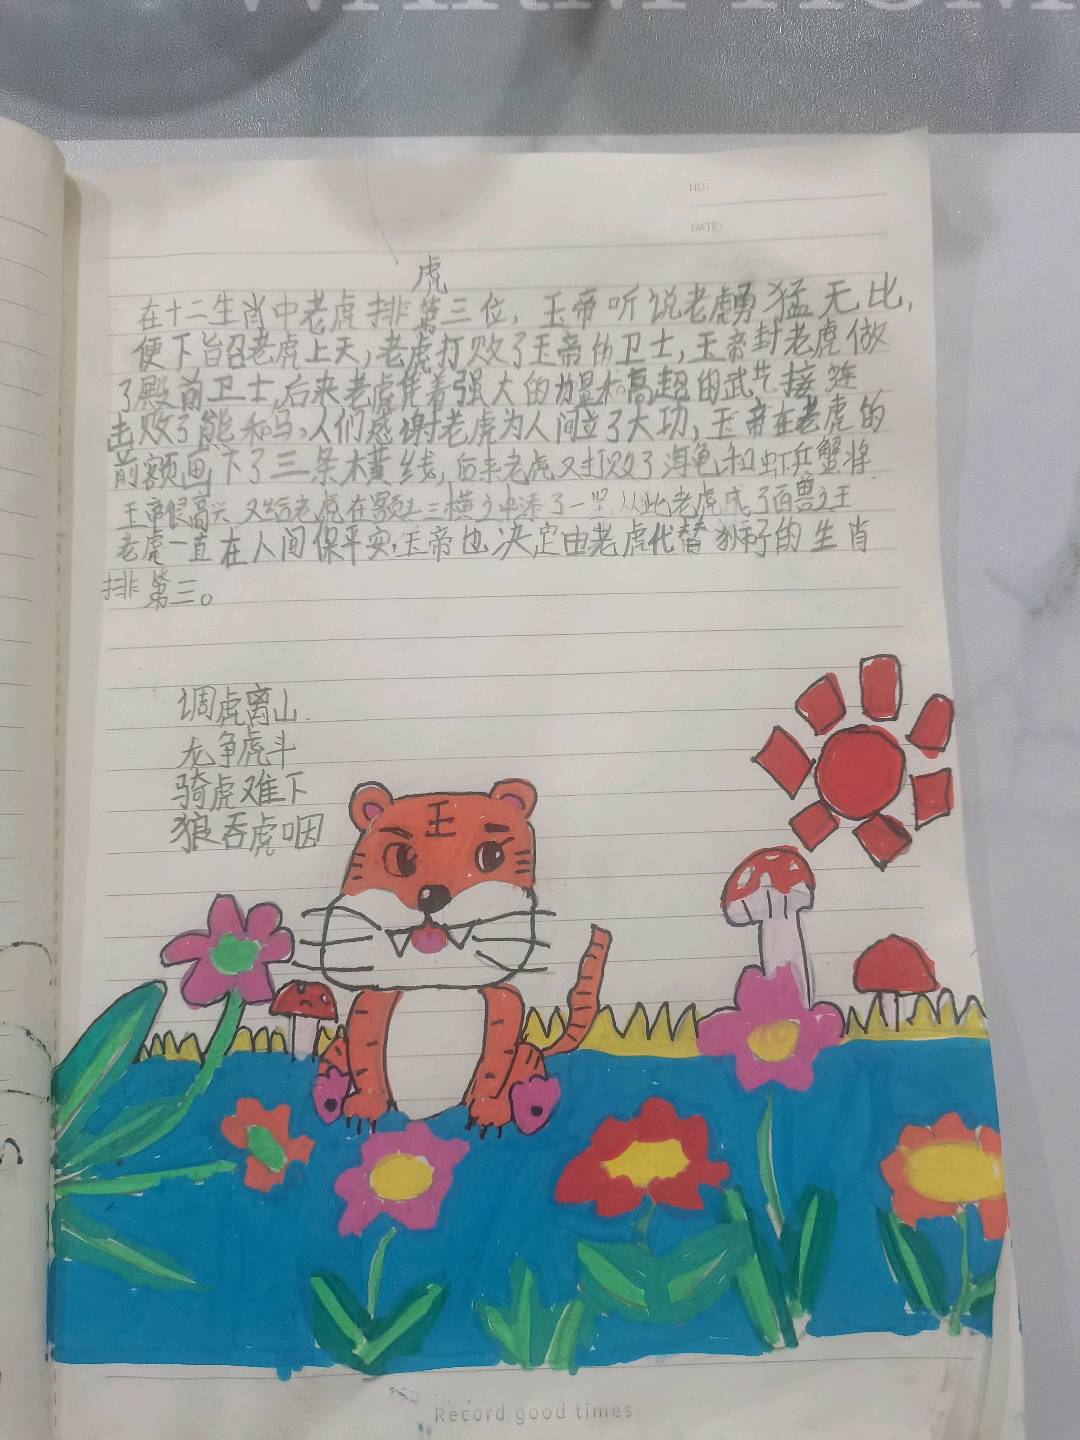 WARM HOM
NO:
DATE:
虎
在十二生肖中老虎排第三位，玉帝听说老虎勇猛无比，
便下旨召老虎上天，老虎打败了玉帝的卫士，玉帝封老虎做
了殿前卫士，后来老虎凭着强大的力量和高超的武艺接连
击败了熊和马，人们感谢老虎为人间立了大功，玉帝在老虎的
前额画下了三条横线，后来老虎又打败了海龟和虾兵蟹将
玉帝很高兴 又给老虎在额上三横之中添了一竖 从此老虎成了百兽之王
老虎一直在人间保平安，玉帝也决定由老虎代替狮子的生肖
排第三。
调虎离山
龙争虎斗
骑虎难下
狼吞虎咽
王
Record good times